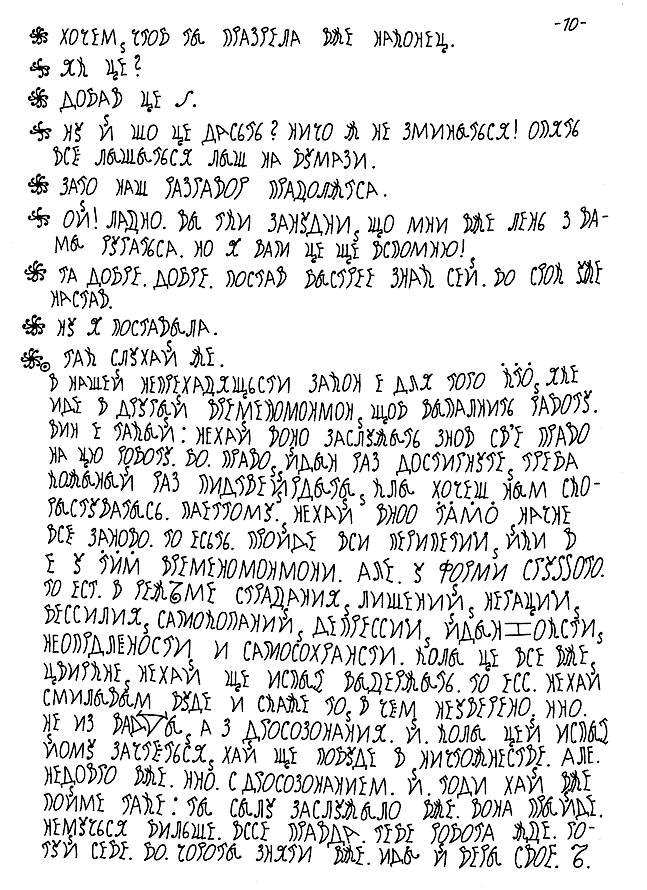 -10-
ХОЧЕМ, ЧТОБ ТЫ ПРАЗРЕЛА ВЖЕ НАКОНЕЦ.
ЯК ЦЕ?
ДОБАВ ЦЕ
НУ Й ШО ЦЕ ДАСЬТЬ? НИЧО Ж НЕ ЗМИНЫТЬСЯ! ОПЯТЬ
ВСЕ ЛЫШЫТЬСЯ ЛЫШ НА БУМАЗИ.
ЗАТО НАШ РАЗГАВОР ПРАДОЛЖТСА.
ОЙ! ЛАДНО. ВЫ ТКИ ЗАНУДНИ, ЩО МНИ ВЖЕ ЛЕНЬ З ВА-
МЫ РУГАТЬСА. НО Я ВАМ ЦЕ ЩЕ ВСПОМНЮ!
ТА ДОБРЕ. ДОБРЕ. ПОСТАВ БЫСТРЕЕ ЗНАК СЕЙ. БО СРОК УЖЕ
НАСТАВ.
НУ Я ПОСТАВЫЛА.
ТАК СЛУХАЙ ЖЕ.
В НАШЕЙ НЕПРЕХАДЯЩЬСТИ ЗАКОН Е ДЛЯ ТОГО КТО, ЯКЕ
ИДЕ В ДРУГЫЙ ВРЕМЕНОМОНМОН, ЩОБ ВЫПАЛНИТЬ РАБОТУ.
ВИН Е ТАКЫЙ: НЕХАЙ ВОНО ЗАСЛУЖЫТЬ ЗНОВ СВ'Е ПРАВО
НА ЦЮ РОБОТУ. БО. ПРАВО, ЙДЫН РАЗ ДОСТИГНУТЕ, ТРЕБА
КОЖЫНЫЙ РАЗ ПИДТВЕЙРДЫТЫ, КЛЫ ХОЧЕШ НЫМ СКО-
РЫСТУВАТЫСЬ. ПАЕТТОМУ. НЕХАЙ ВНОО ТАМО НАЧНЕ
ВСЕ ЗАНОВО. ТО ЕСЬТЬ. ПРОЙДЕ ВСИ ПЕРИПЕТИИ, ЙКИ В
Е У ТИМ ВРЕМЕНОМОНМОНИ. АЛЕ. У ФОРМИ
ТО ЕСТ. В СТРАДАНИЯ, ЛИШЕНИЙ, НЕГАЦИЙ,
БЕССИЛИЯ, САМОКОПАНИЙ, ДЕПРЕССИИ,
НЕОПРДЛЕНОСТИ И САМОСОХРАНСТИ. КОЛЫ ЦЕ ВСЕ ВЖЕ,
НЕХАЙ ЩЕ ВЫДЕРЖЫТЬ. ТО ЕСС. НЕХАЙ
СМИЛЫВЫМ БУДЕ И СКАЖЕ ТО, В ЧЕМ НЕУВЕРЕНО, ННО.
НЕ ИЗ А З ДРОСОЗНАНИЯ. Й. КОЛЫ ЦЕЙ
ЙОМУ ЗАЧТЕТЬСЯ, ХАЙ ЩЕ ПОБУДЕ В НИЧТОЖНЕСТВЕ. АЛЕ.
НЕДОВГО ВЖЕ. ННО. С ДРОСОЗНАНИЕМ. Й. ТОДИ ХАЙ ВЖЕ
ПОЙМЕ ТАКЕ: ТЫ СЫЛУ ЗАСЛУЖЫЛО ВЖЕ. ВОНА ПРЫЙДЕ.
НЕМУЧЬСЯ БИЛЬШЕ. ВССЕ ПРАВДА. ТЕБЕ РОБОТА ЖДЕ. ГО-
ТУЙ СЕБЕ. БО. ЧОРОТЫ ЗНЯТИ ВЖЕ. ИДЫ Й БЕРЫ СВОЕ.